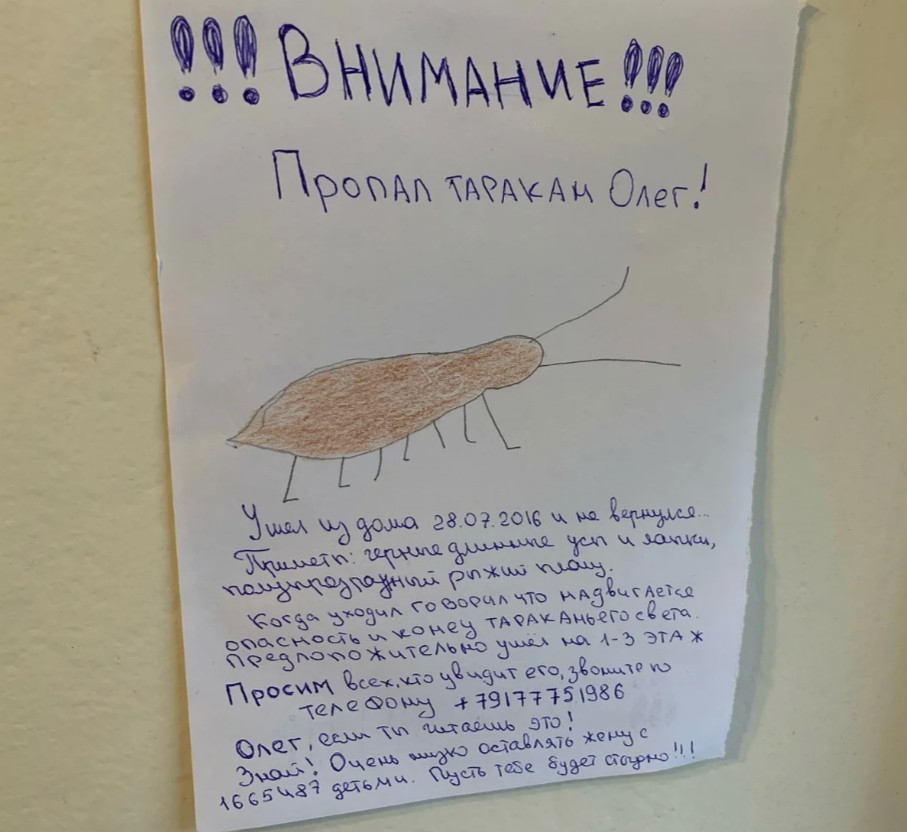 !!! ВНИМАНИЕ !!!
Пропал таракан Олег!
Ушел из дома 28.07.2016 и не вернулся...
Приметы: черные длинные усы и лапки,
полупрозрачный рыжий плащ.
Когда уходил говорил что надвигается
опасность и конец тараканьего света.
Предположительно ушёл на 1-3 этаж
Просим всех, кто увидит его, звоните по
телефону +79177751986
Олег, если ты читаешь это!
Знай! Очень низко оставлять жену с
1665487 детьми. Пусть тебе будет стыдно!!!